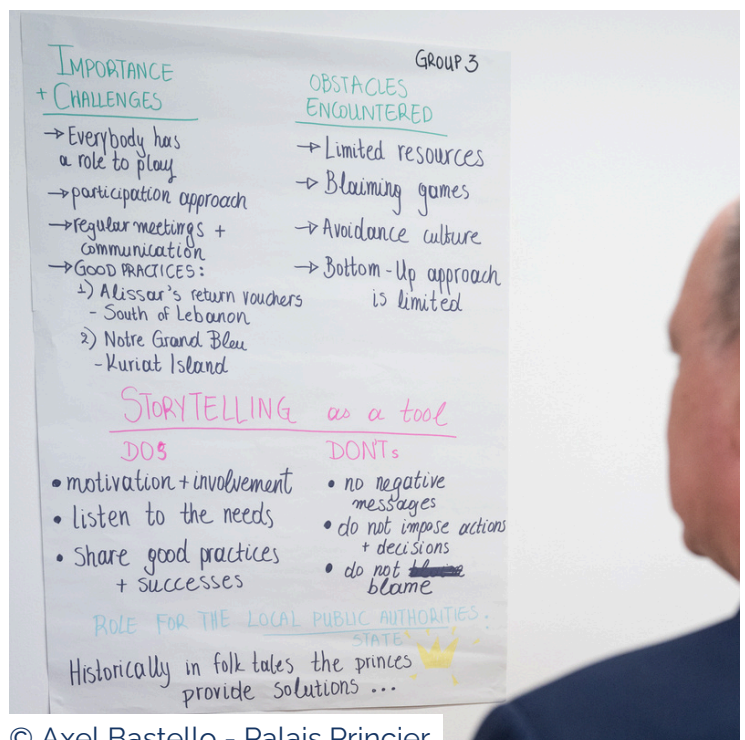 GROUP 3
IMPORTANCE
+ CHALLENGES
→ Everybody has
a role to play
→ participation approach
→ regular meetings +
communication
→ GOOD PRACTICES:
1) Alissar's return vouchers
- South of Lebanon
2) Notre Grand Bleu
- Kuriat Island
OBSTACLES
ENCOUNTERED
→ Limited resources
→ Blaiming games
→ Avoidance culture
→ Bottom-Up approach
is limited
STORYTELLING as a tool
DOS
• motivation + involvement
• listen to the needs
• Share good practices
+ successes
DON'Ts
• no negative
messages
• do not impose actions
+ decisions
• do not
blame
ROLE FOR THE LOCAL PUBLIC AUTHORITIES.
STATE
Historically in folk tales the princes
provide solutions ...
© Axel Bastello - Palais Princier